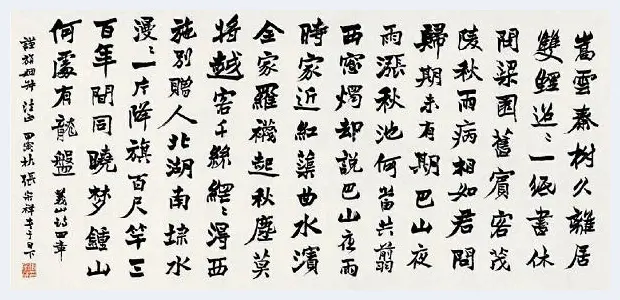 嵩雲秦树久離居
雙鯉迢〻一紙書休
問梁園舊賓客茂
陵秋雨病相如君問
歸期未有期巴山夜
雨漲秋池何當共翦
西窓燭却說巴山夜雨
時家近紅蕖曲水濱
全家羅襪起秋塵莫
將越客千絲網〻得西
施別贈人北湖南埭水
漫〻一片降旗百尺竿三
百年間同曉梦鍾山
何處有龍盤 義山詩四章
法正 甲寅秋 張宗祥書于日下